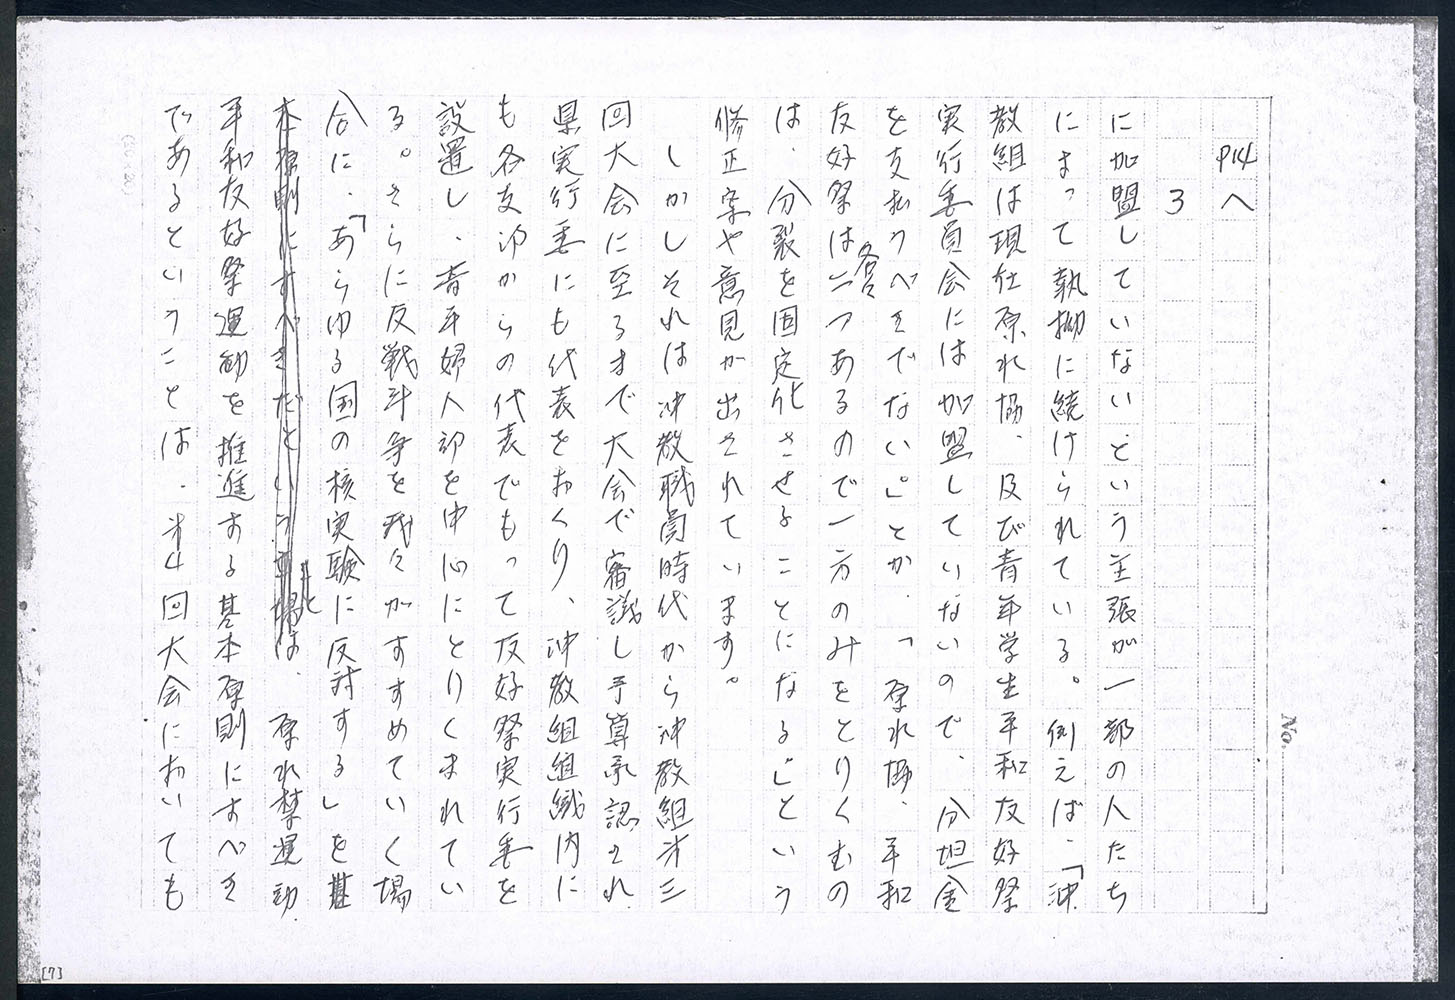 No.
P14へ
3
に加盟していない、という主張が一部の人たち
によって執拗に続けられている。例えば、「沖
教組は現在原水協、及び青年学生平和友好祭
実行委員会には加盟していないので、分担金
を支払うべきでない。」とか、「原水協、平和
友好祭は各々二つあるので一方のみをとりくむの
は、分裂を固定化させることになる」という
修正案や意見が出されています。
しかしそれは沖教職員時代から沖教組㐧三
回大会に至るまで大会で審議し予算承認され
県実行委にも代表をおくり、沖教組組織内に
も各支部からの代表でもって友好祭実行委を
設置し、青年婦人部を中心にとりくまれてい
る。さらに反戦斗争を我々がすすめていく場
合に、「あらゆる国の核実験に反対する」を基
本原則にすべきだという事は、原水禁運動
平和友好祭運動を推進する基本原則にすべき
であるということは、㐧4回大会においても
[7]